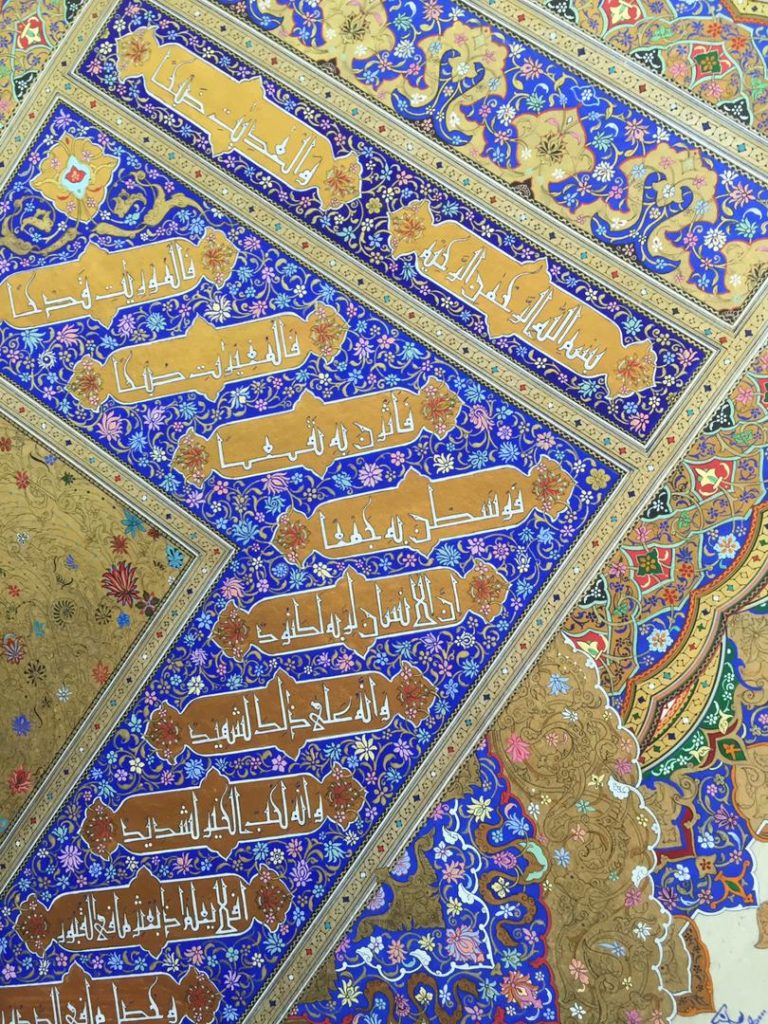 بسم الله الرحمن الرحيم
والعديت ضبحا
فالموريت قدحا
فالمغيرت صبحا
فأثرن به نقعا
فوسطن به جمعا
ان الانسان لربه لكنود
وانه على ذلك لشهيد
وانه لحب الخير لشديد
افلا يعلم اذا بعثر ما فى القبور
وحصل ما فى الصدور